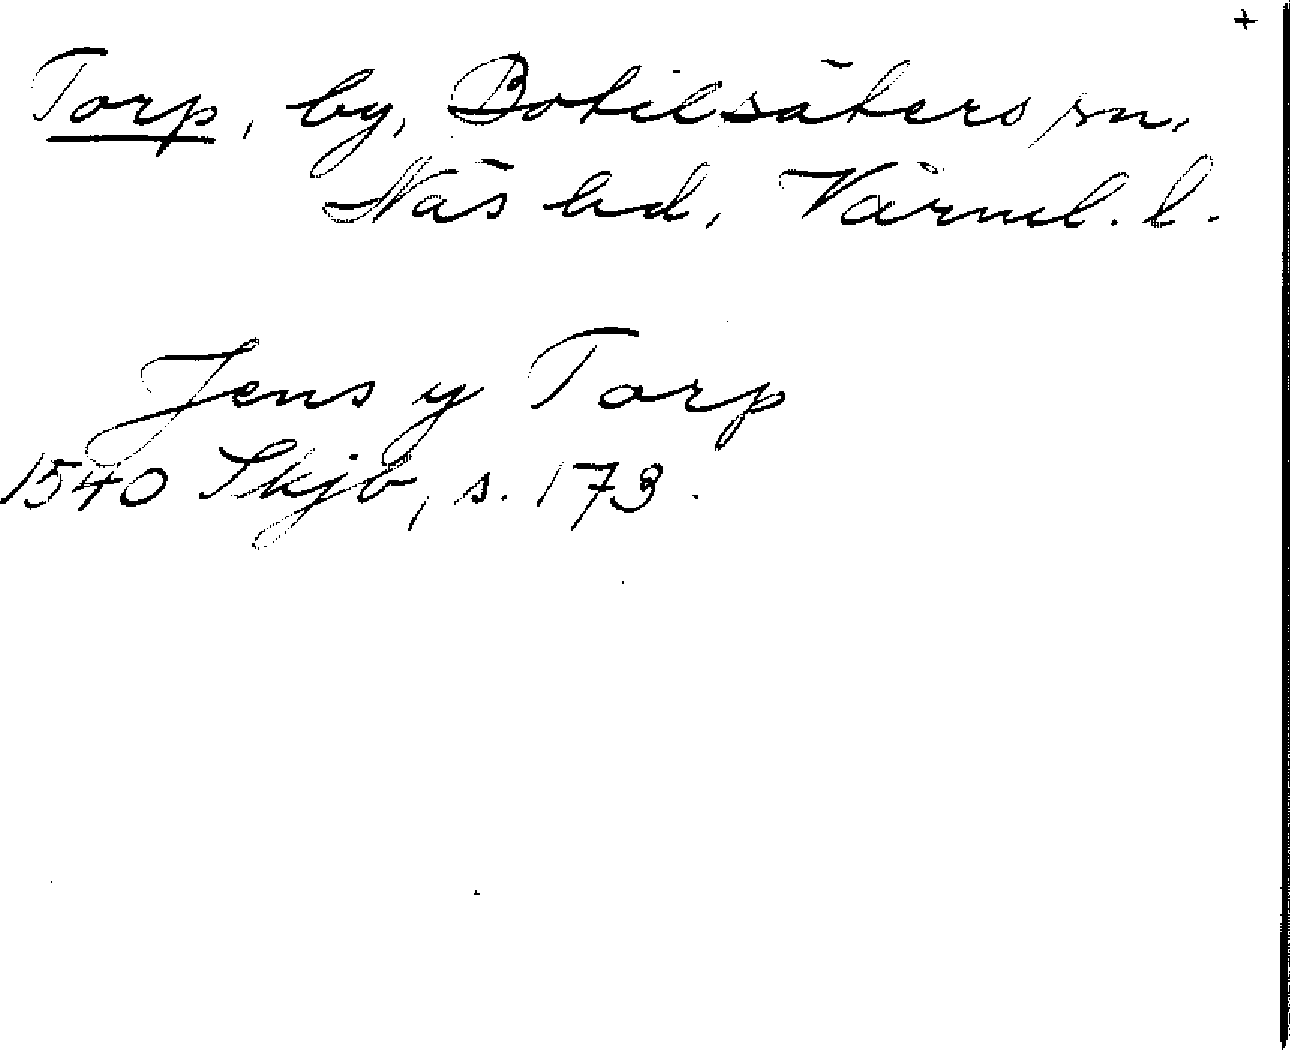 +
Torp, by, Botilsäters sn.
Näs hd, Värml. l.
Jens y Torp
1540 Skjb, s. 173.